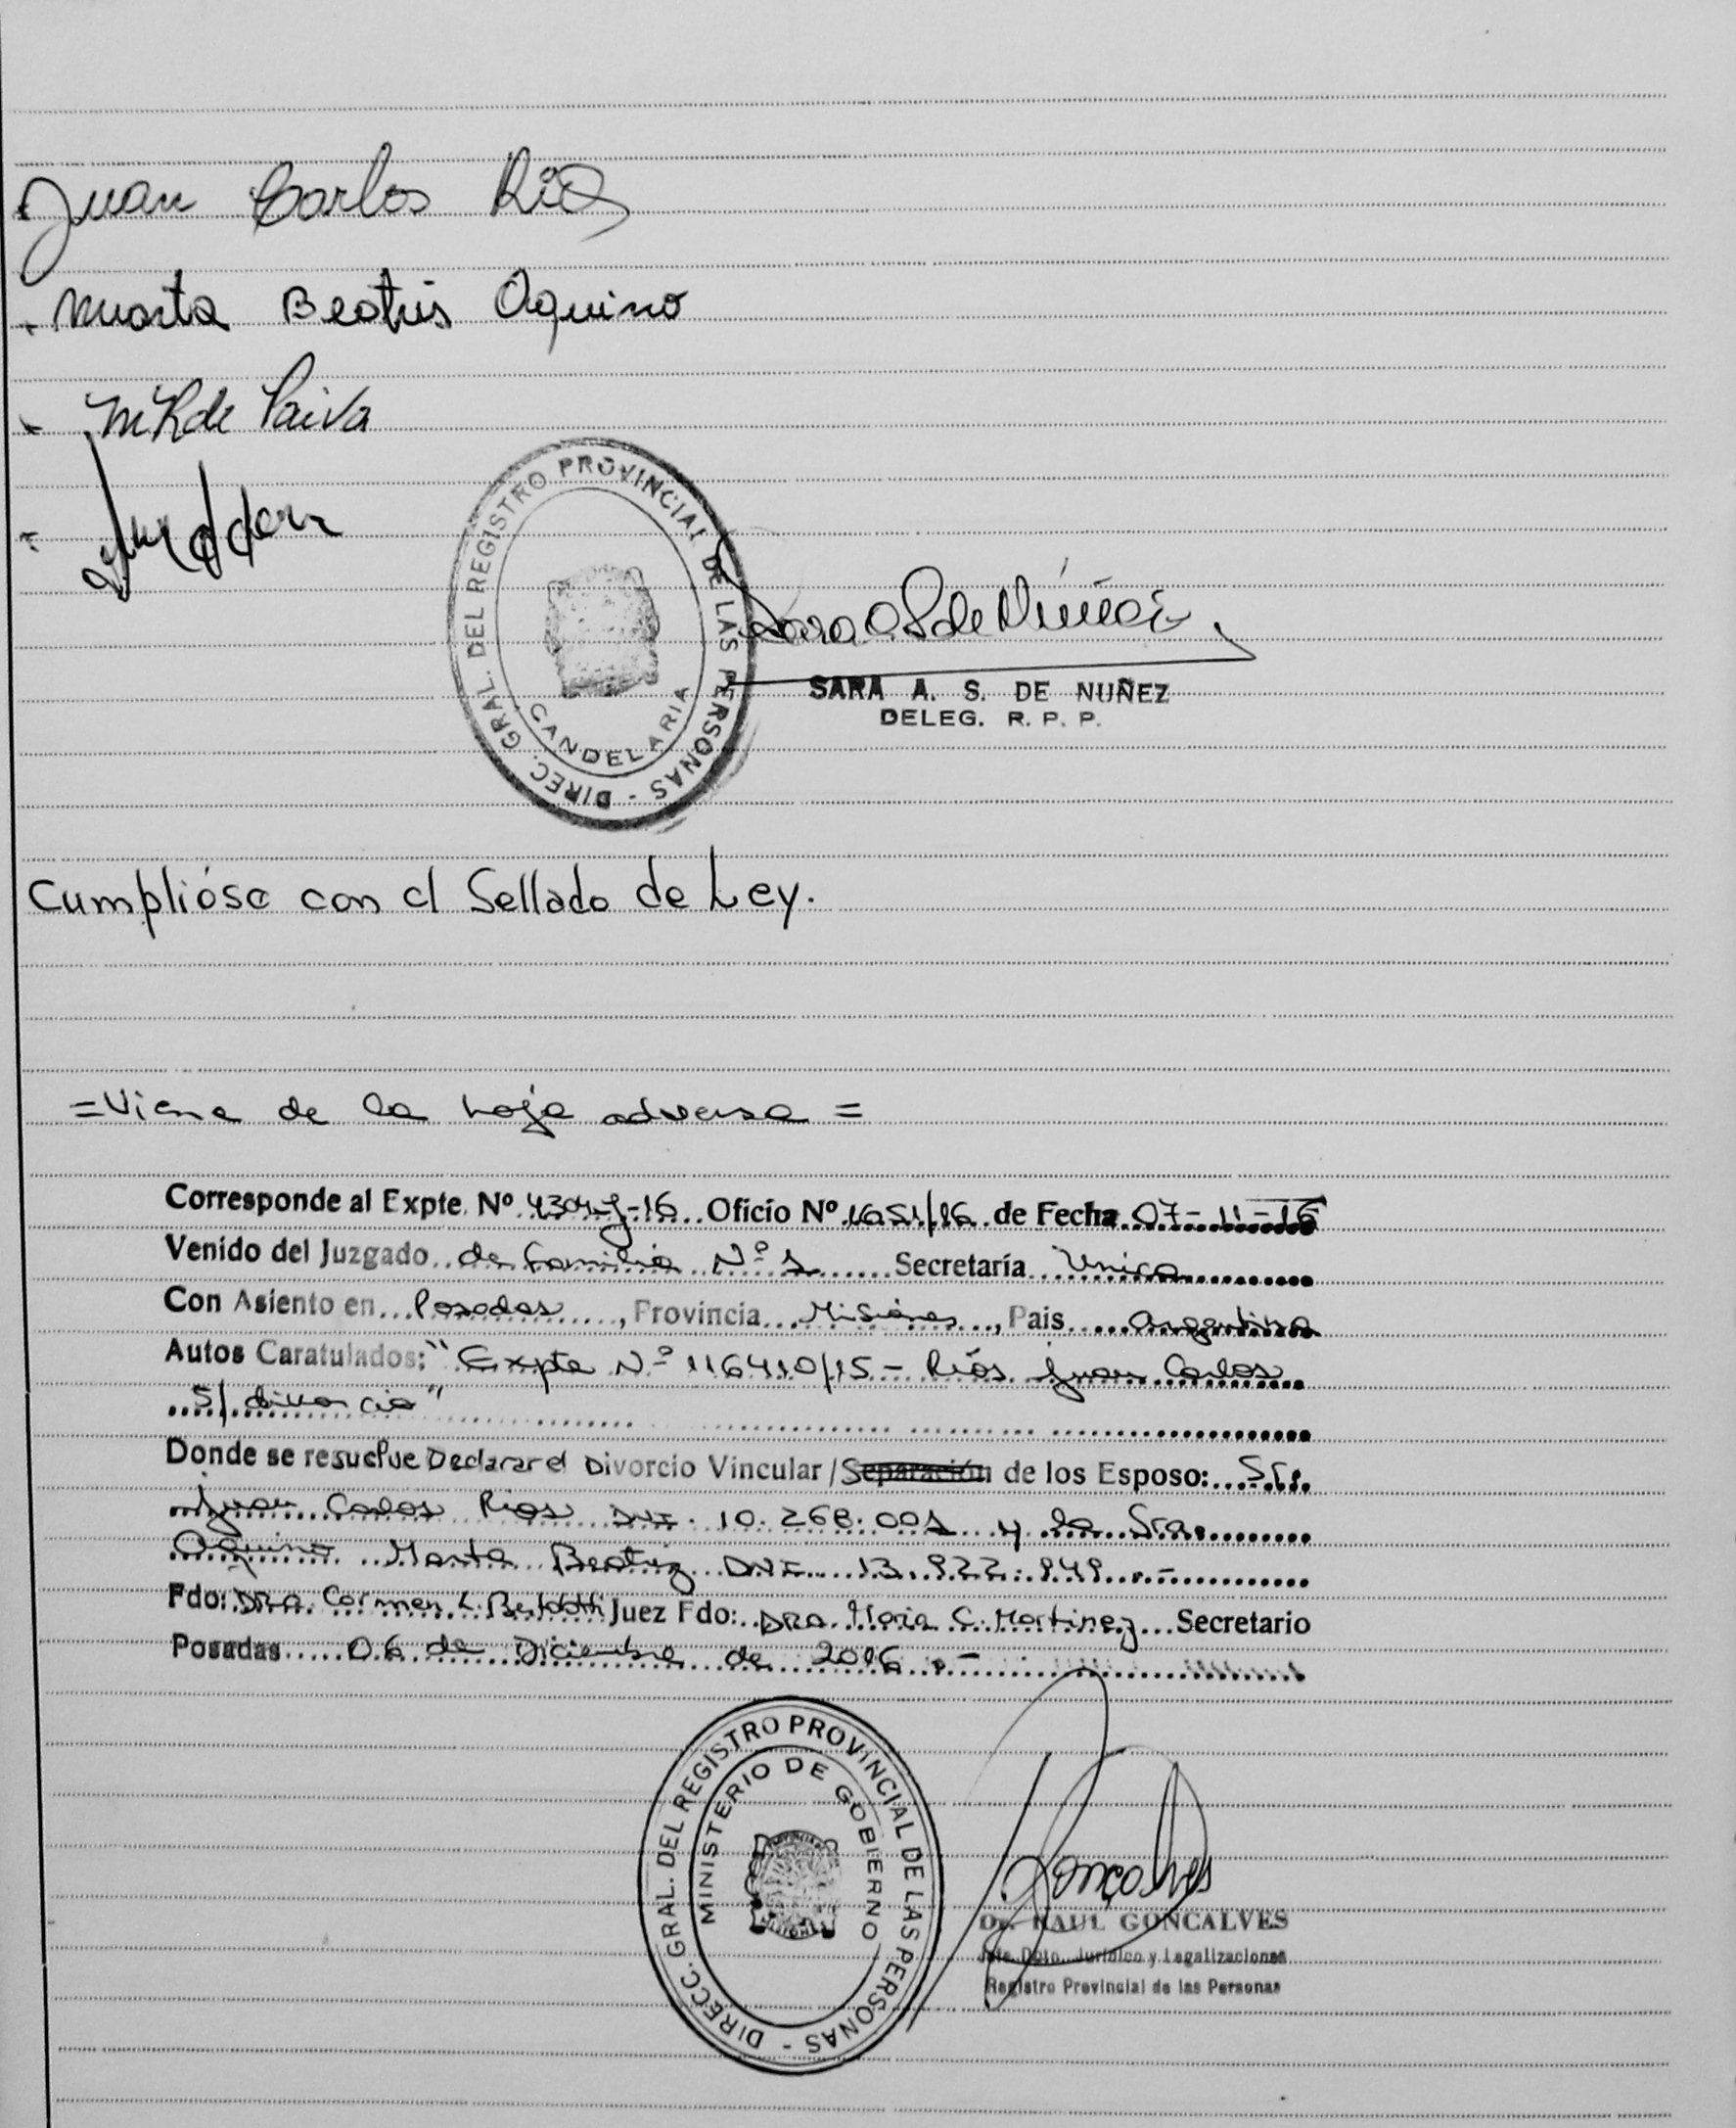 Juan Carlos Ríos
Marta Beatris Aquino
M R de Paiva
DIREC. GRAL. DEL REGISTRO PROVINCIAL DE LAS PERSONAS -
CANDELARIA
Sara A S de Núñez
SARA A. S. DE NUÑEZ
DELEG. R. P. P.
Cumplióse con el Sellado de Ley.
=Viene de la hoja adversa =
Corresponde al Expte. Nº -16 Oficio Nº 1651/16 de Fecha 07-11-16
Venido del Juzgado de Familia Nº 1 Secretaría Unica
Con Asiento en Posadas, Provincia Misiones, Pais Argentina
Autos Caratulados: "Expte Nº 116410/15 - Ríos Juan Carlos
S/ divorcio"
Donde se resuelve Declarar el Divorcio Vincular / Separación de los Esposo: Sr.
Juan Carlos Rios DNI. 10.268.001 y la Sra.
Aquino Marta Beatriz DNI. 13.922.949.-
Fdo: Dra. Carmen L. Juez Fdo: Dra. Maria C. Martinez Secretario
Posadas 06 de Diciembre de 2016.-
DIRECC. GRAL. DEL REGISTRO PROVINCIAL DE LAS PERSONAS -
MINISTERIO DE GOBIERNO
Goncalves
Dr. RAUL GONCALVES
Jefe Dpto. Jurídico y Legalizaciones
Registro Provincial de las Personas